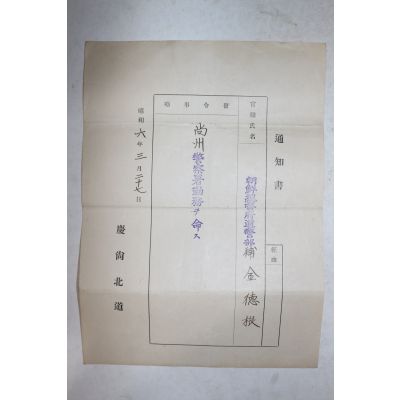 通知書
官職氏名
朝鮮總督府道警部補 金德
發令事項
尚州警察署勤務ヲ命ス
昭和六年三月二十七日
慶尚北道